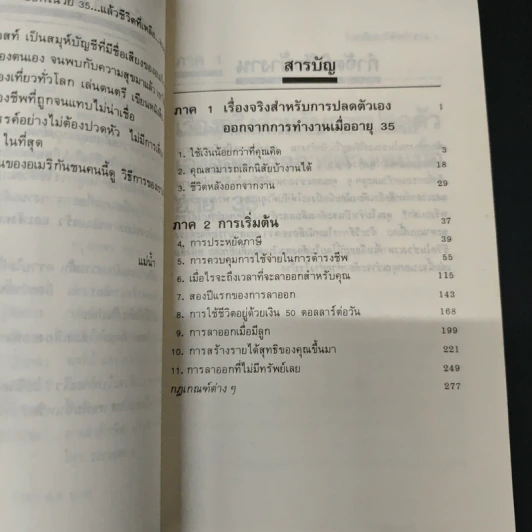 35...แล้วชีวิตที่เหลือ
สท์ เป็นสมุห์บัญชีที่มีชื่อเสียงของ
องตนเอง จนพบกับความสุขมาแล้ว
องเที่ยวทั่วโลก เล่นดนตรี
องชีพที่ถูกจนแทบไม่น่าเชื่อ
รคด์อย่างไม่ต้องปวดหัว ไม่มีการ
ในที่สุด
นของอเมริกันชนคนนี้ดู วิธีการของ
แม่น้ำ
สารบัญ
ภาค 1 เรื่องจริงสำหรับการปลดตัวเอง
ออกจากการทำงานเมื่ออายุ 35 1
1. ใช้เงินน้อยกว่าที่คุณคิด 3
2. คุณสามารถเลิกนิสัยบ้างานได้ 18
3. ชีวิตหลังออกจากงาน 29
ภาค 2 การเริ่มต้น 37
4. การประหยัดภาษี 39
5. การควบคุมการใช้จ่ายในการดำรงชีพ 55
6. เมื่อไรจะถึงเวลาที่จะลาออกสำหรับคุณ 115
7. สองปีแรกของการลาออก 143
8. การใช้ชีวิตอยู่ด้วยเงิน 50 ดอลลาร์ต่อวัน 168
9. การลาออกเมื่อมีลูก 199
10. การสร้างรายได้สุทธิของคุณขึ้นมา 221
11. การลาออกที่ไม่มีทรัพย์เลย 249
กฎเกณฑ์ต่าง ๆ 277